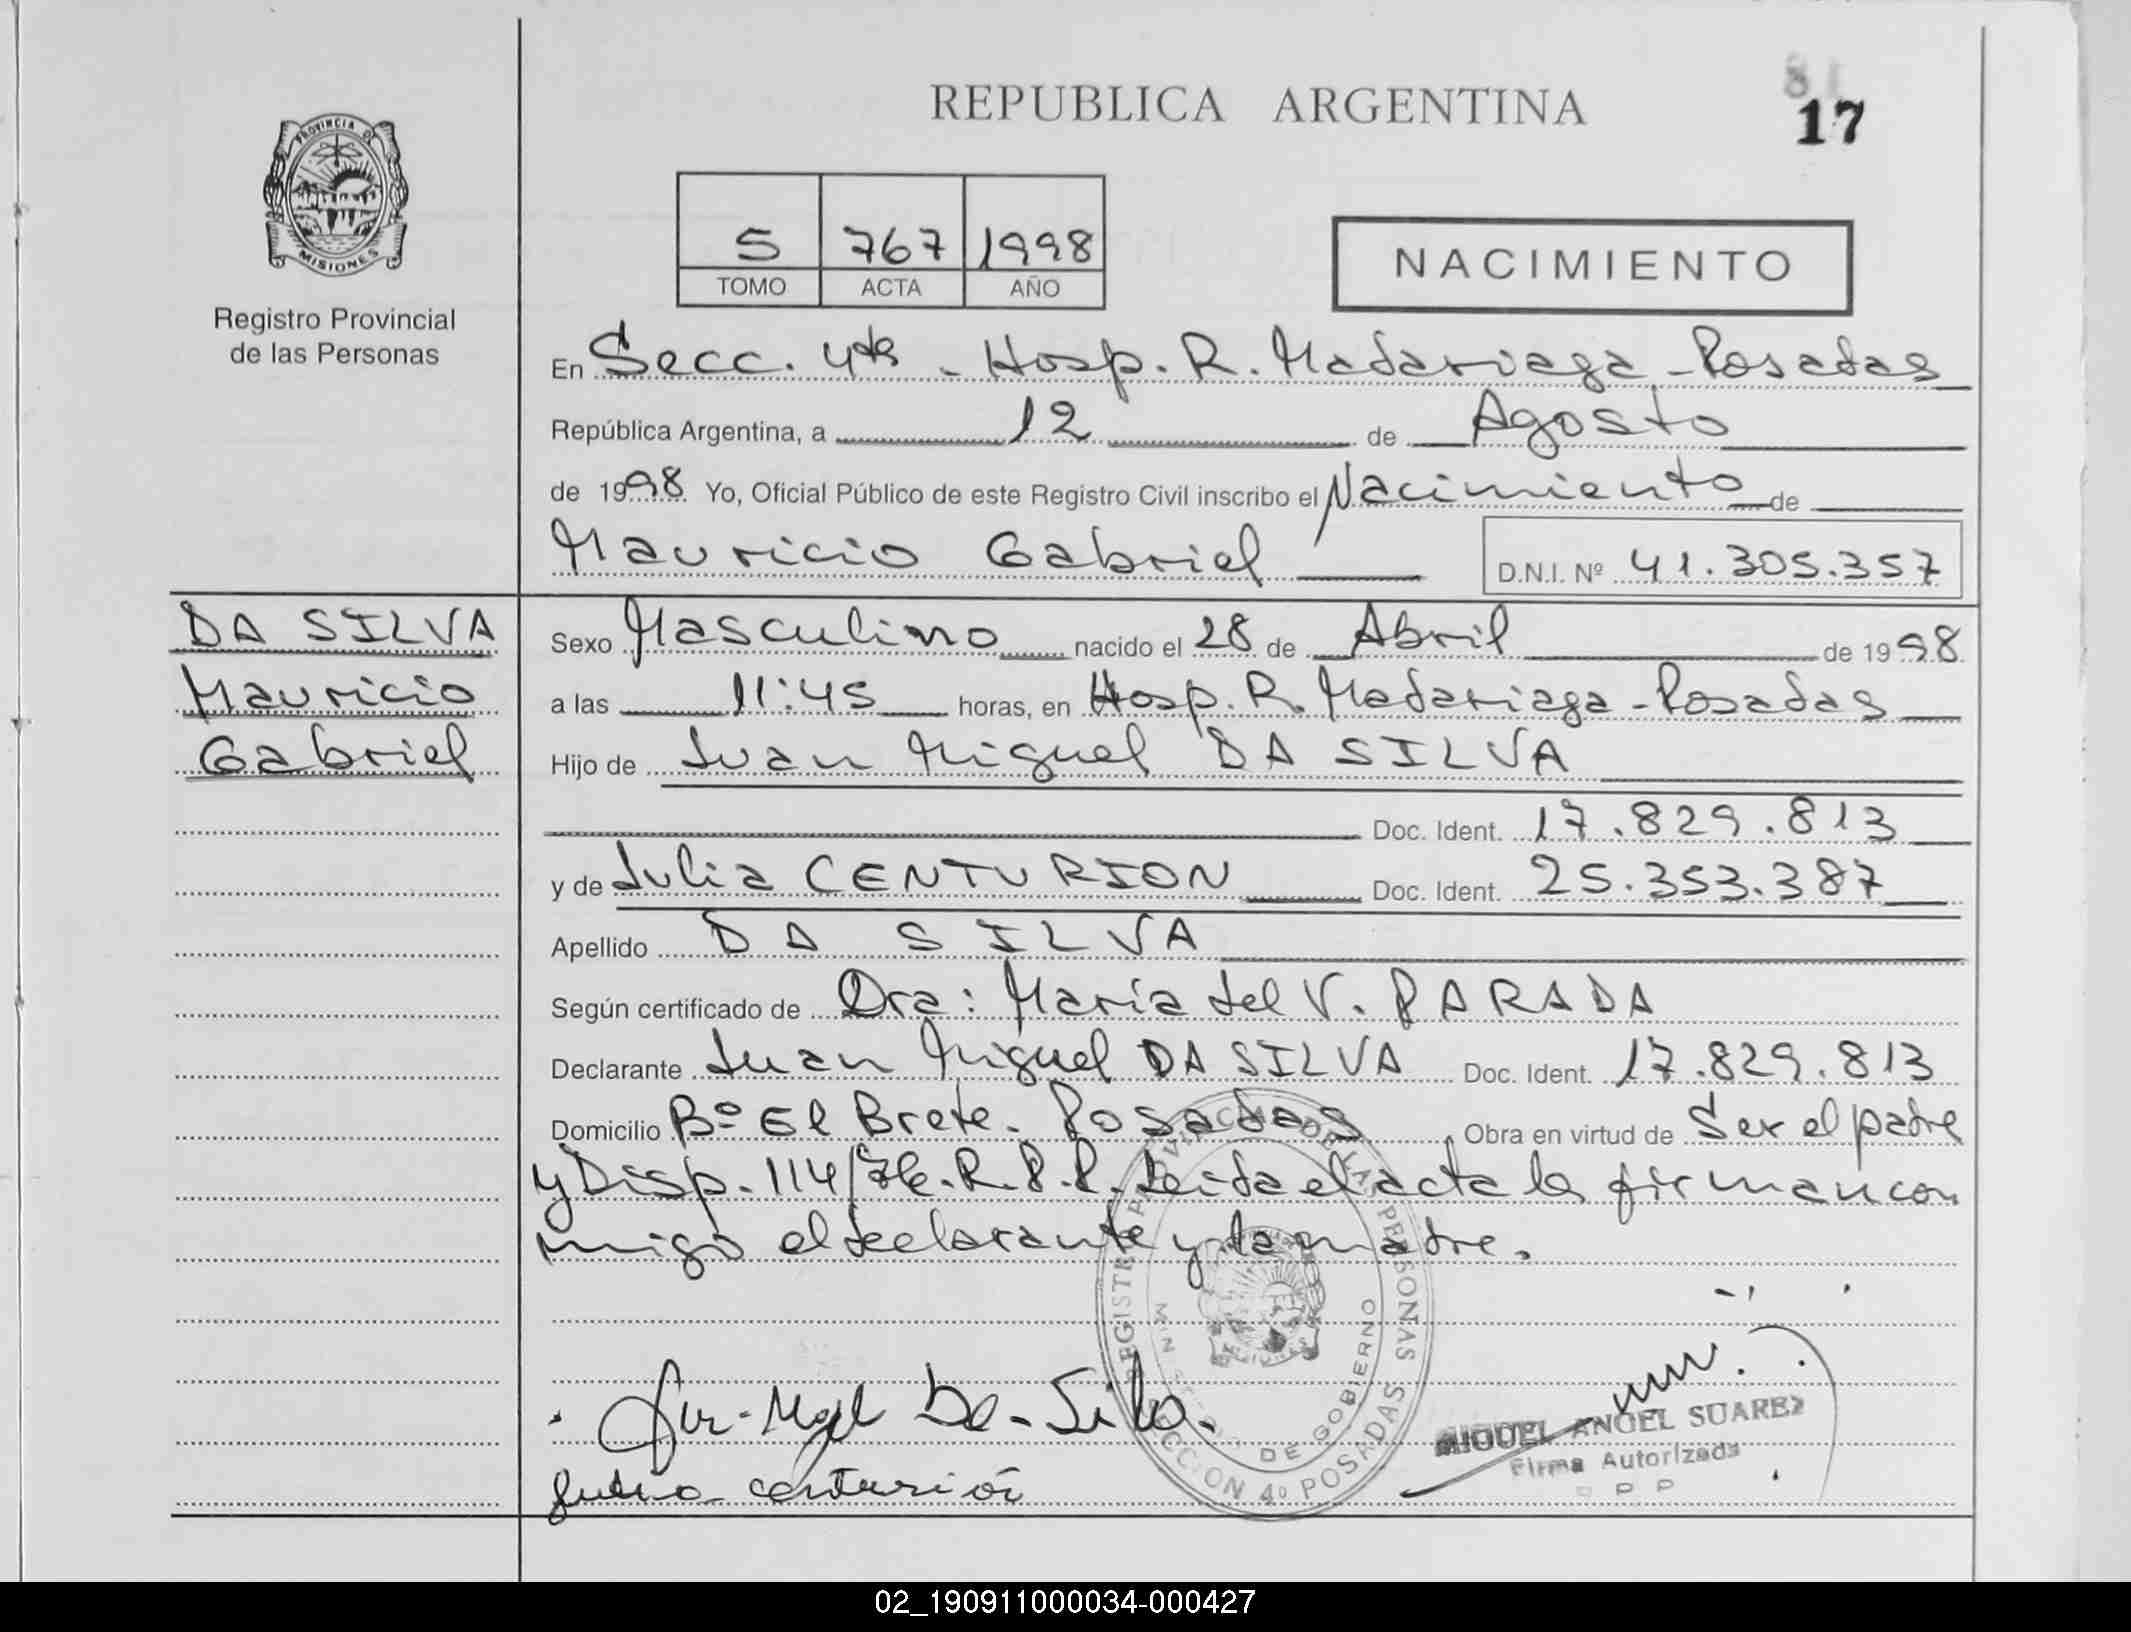 REPUBLICA ARGENTINA
81
17
PROVINCIA DE
MISIONES
Registro Provincial
de las Personas
5 767 1998
TOMO ACTA AÑO
NACIMIENTO
En Secc. 4ta - Hosp. R. Madariaga - Posadas
República Argentina, a 12 de Agosto
de 1998 Yo, Oficial Público de este Registro Civil inscribo el Nacimiento de
Mauricio Gabriel D.N.I. Nº 41.305.357
DA SILVA
Mauricio
Gabriel
Sexo Masculino nacido el 28 de Abril de 1998
a las 11:45 horas, en Hosp. R. Madariaga - Posadas
Hijo de Juan Miguel DA SILVA
Doc. Ident. 17.829.813
y de Julia CENTURION Doc. Ident. 25.353.387
Apellido DA SILVA
Según certificado de Dra: María del V. PARADA
Declarante Juan Miguel DA SILVA Doc. Ident. 17.829.813
Domicilio Bº El Brete. Posadas Obra en virtud de Ser el padre
y Disp. 114/76. R.P.P. Leida el acta la firman con
migo el declarante y la madre.
REGISTRO PROVINCIAL DE LAS PERSONAS
MINISTERIO DE GOBIERNO
SECCION 4º POSADAS
Da-Silva
centurión
MIGUEL ANGEL SUAREZ
Firma Autorizada
02_190911000034-000427